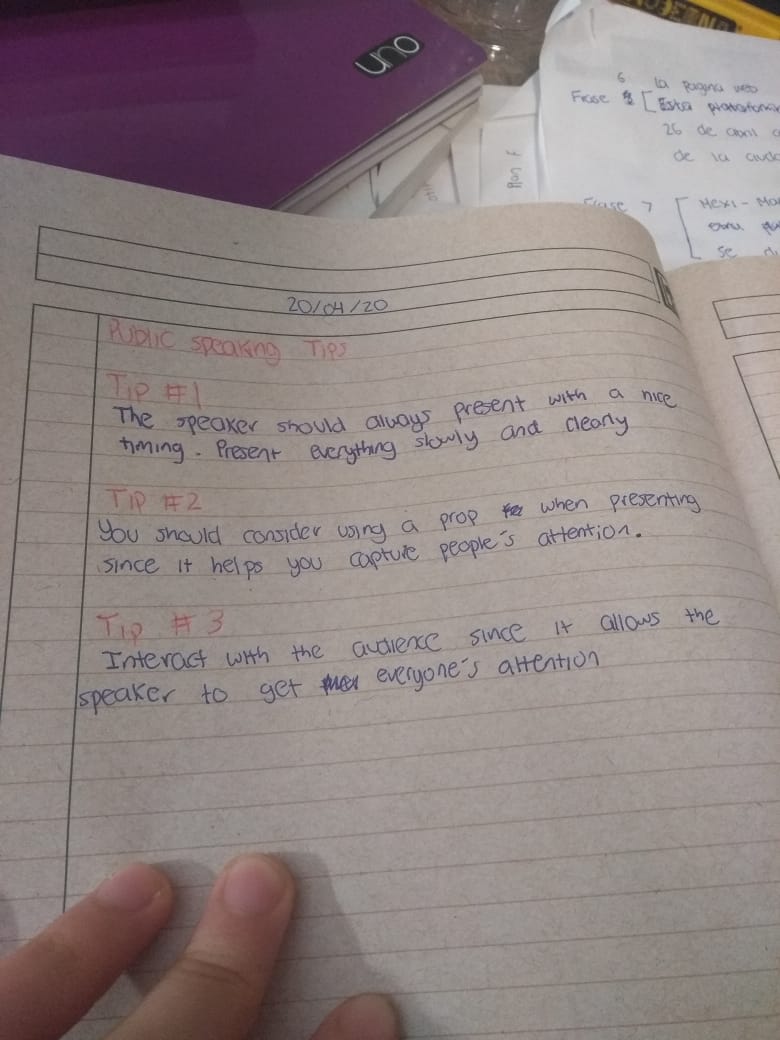 uno
6
La pagina web
Frase [ Esta
26 de abril
de la
Frase 7 [ Mexi-
se
20/04/20
Public speaking Tips
Tip #1
The speaker should always present with a nice
timing. Present everything slowly and clearly
Tip #2
You should consider using a prop when presenting
since it helps you capture people's attention.
Tip #3
Interact with the audience since it allows the
speaker to get everyone's attention